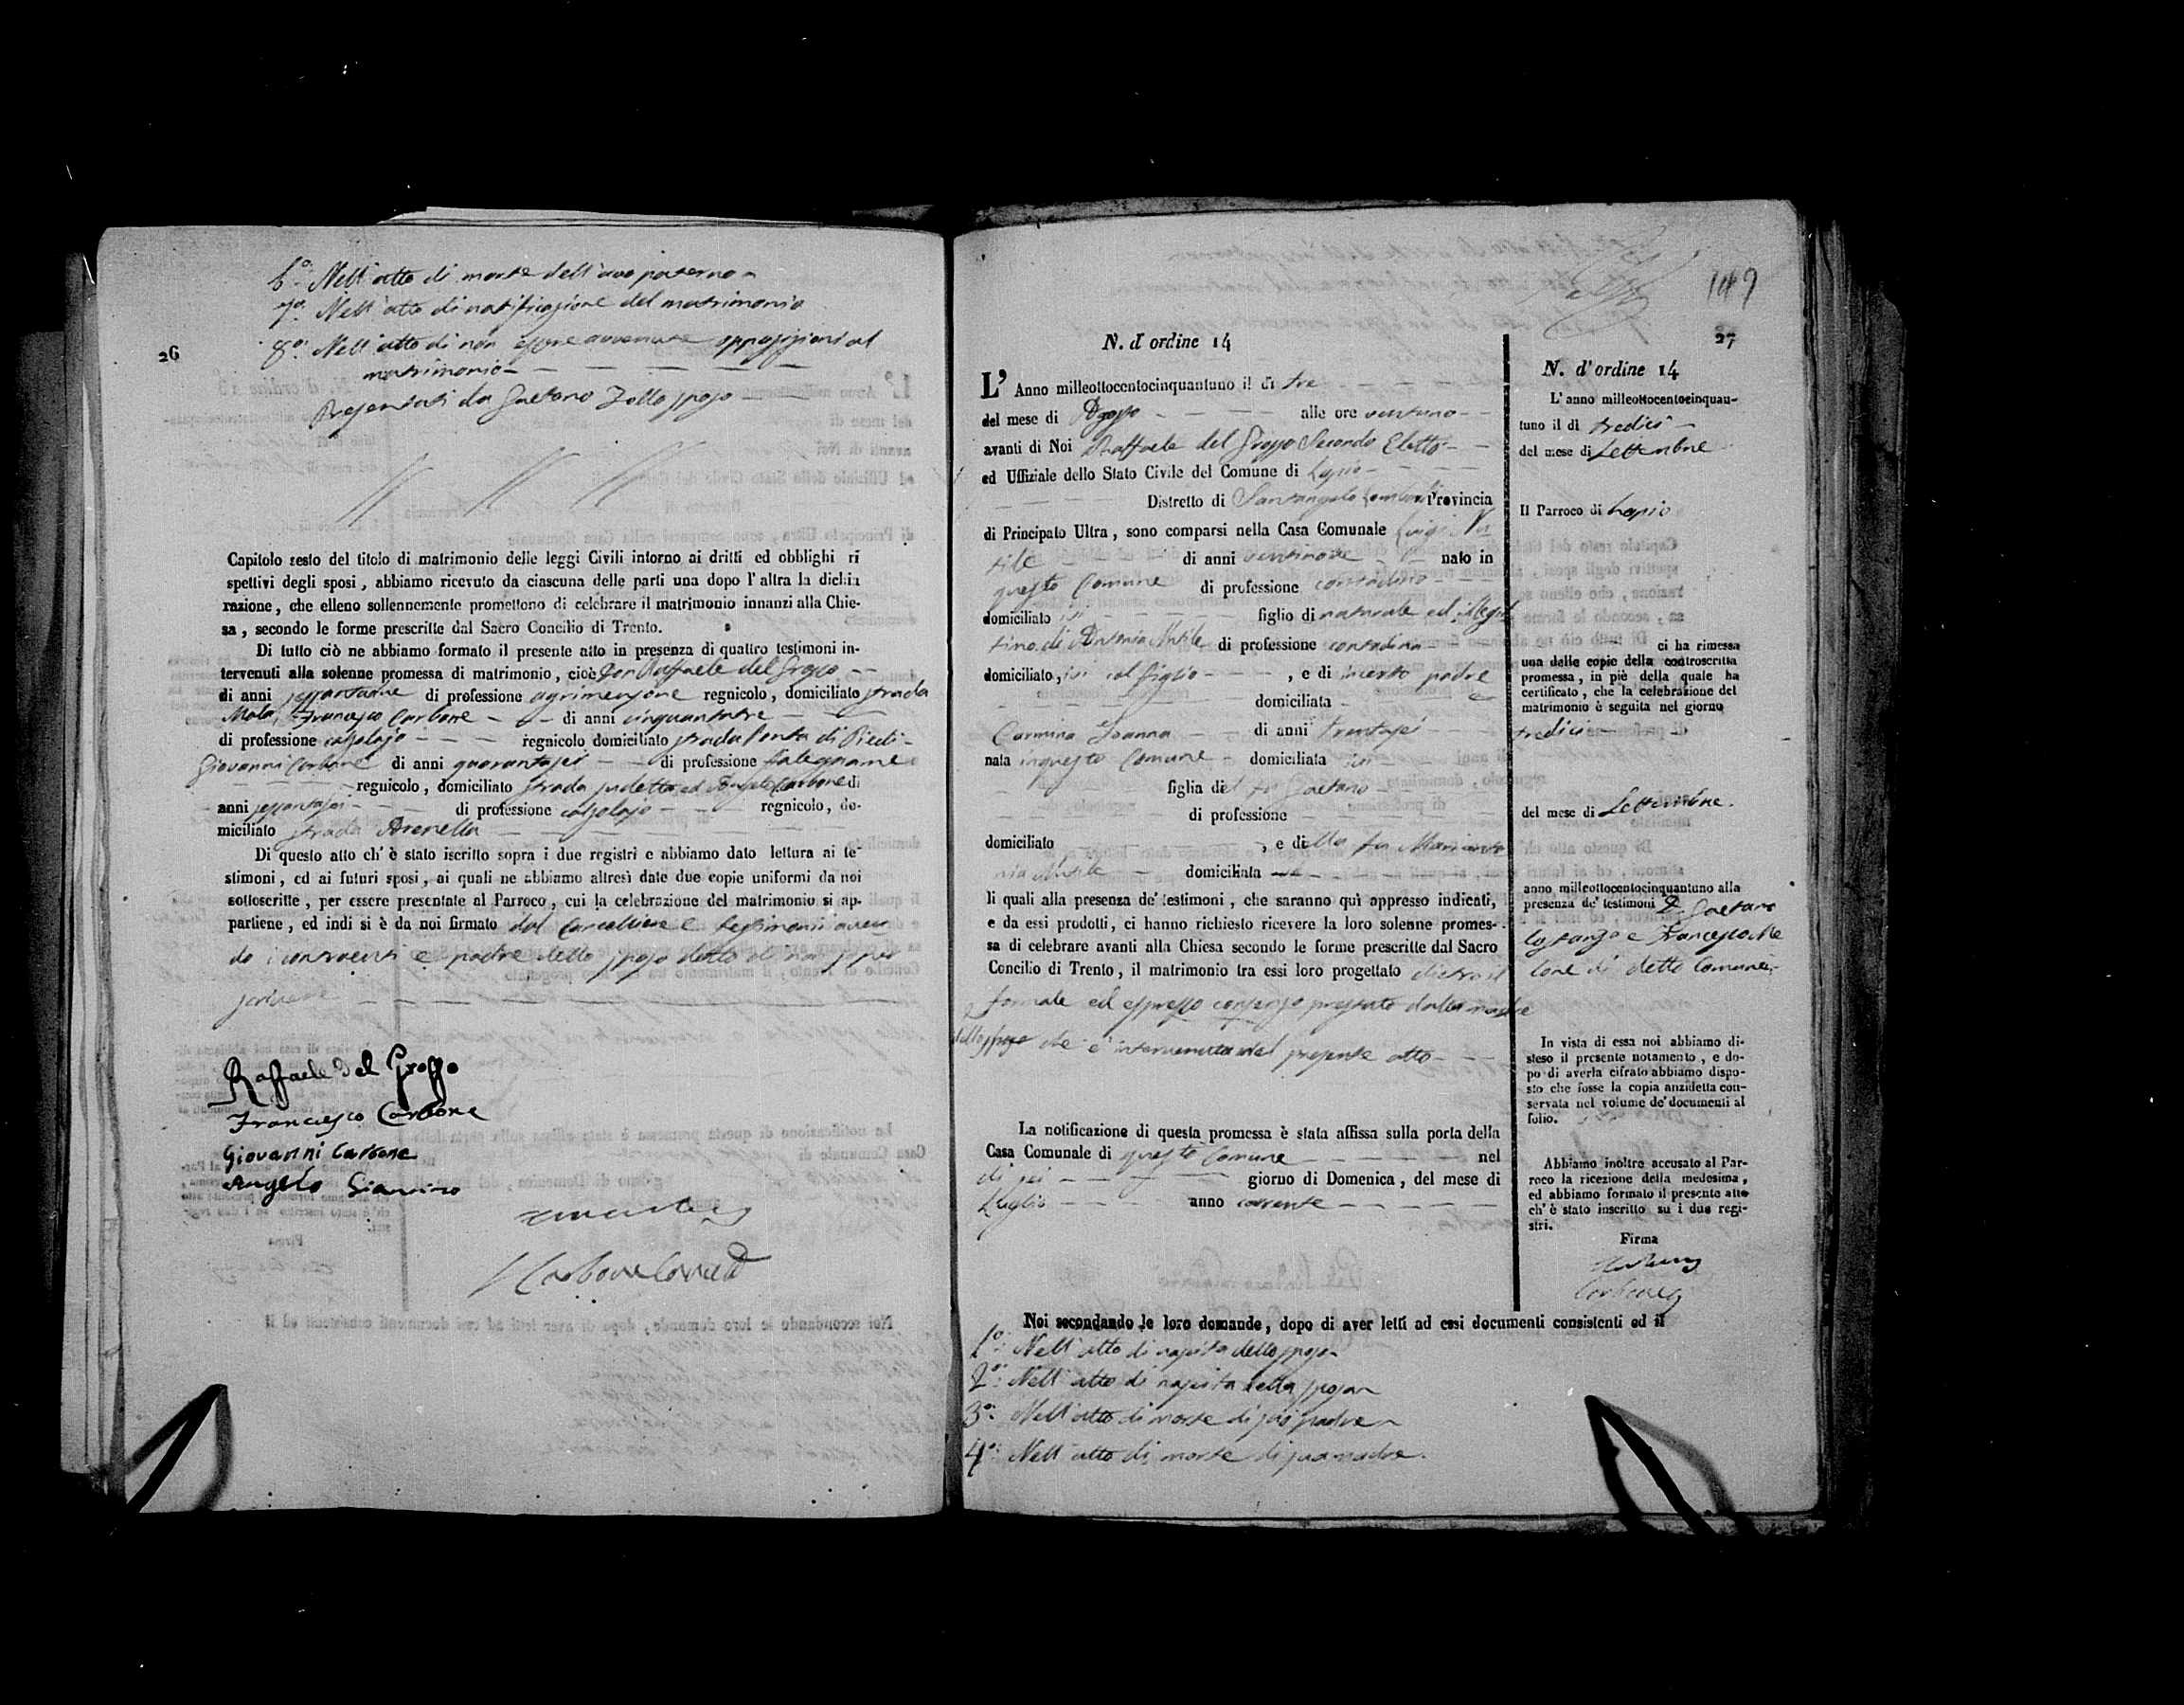 6.º Nell'atto di morte dell'avo paterno
7.º Nell'atto di notificazione del matrimonio
8.º Nell'atto di non essere avvenute opposizioni al
matrimonio
Presentati da Gaetano Zollo sposo
26
Capitolo sesto del titolo di matrimonio delle leggi Civili intorno ai dritti ed obblighi ri
spettivi degli sposi, abbiamo ricevuto da ciascuna delle parti una dopo l'altra la dichia
razione, che elleno sollennemente promettono di celebrare il matrimonio innanzi alla Chie-
sa, secondo le forme prescritte dal Sacro Concilio di Trento.
Di tutto ciò ne abbiamo formato il presente atto in presenza di quattro testimoni in-
tervenuti alla solenne promessa di matrimonio, cioè Don Raffaele del Grosso
di anni di professione agrimensore regnicolo, domiciliato strada
Mola, Francesco Carbone di anni cinquantatre
di professione calzolajo regnicolo domiciliato strada Porta di Piedi
Giovanni Carbone di anni quarantasei di professione falegname
regnicolo, domiciliato strada sudetta ed Angelo di
anni sessantasei di professione calzolajo regnicolo, do-
miciliato strada Arenella
Di questo atto ch'è stato iscritto sopra i due registri e abbiamo dato lettura ai te
stimoni, ed ai futuri sposi, ai quali ne abbiamo altresì date due copie uniformi da noi
sottoscritte, per essere presentate al Parroco, cui la celebrazione del matrimonio si ap-
partiene, ed indi si è da noi firmato dal Cancelliere e testimonii aven
do i contraenti e padre dello sposo detto di non saper
scrivere
Raffaele del Grosso
Francesco Carbone
Giovanni Carbone
Angelo Giannino
149
27
N. d'ordine 14
L'Anno milleottocentocinquantuno il dì tre
del mese di Agosto alle ore ventuno
avanti di Noi Raffaele del Grosso Secondo Eletto
ed Uffiziale dello Stato Civile del Comune di Lapio
Distretto di Santangelo Lombardi Provincia
di Principato Ultra, sono comparsi nella Casa Comunale Luigi Nu
tile di anni ventinove nato in
questo Comune di professione contadino
domiciliato ivi figlio di naturale ed illegit
timo di Antonia Nutile di professione contadina
domiciliato, ivi col figlio, e di incerto padre
domiciliata
Carmina Joanna di anni trentasei
nata in questo Comune domiciliata ivi
figlia del fu Gaetano
di professione
domiciliato, e di lla fu Marianto
nia Nutile domiciliata
li quali alla presenza de' testimoni, che saranno quì appresso indicati,
e da essi prodotti, ci hanno richiesto ricevere la loro solenne promes-
sa di celebrare avanti alla Chiesa secondo le forme prescritte dal Sacro
Concilio di Trento, il matrimonio tra essi loro progettato dietro il
formale ed espresso consenso prestato dalla madre
dello sposo che è intervenuta nel presente atto
La notificazione di questa promessa è stata affissa sulla porta della
Casa Comunale di questo Comune nel
dì sei giorno di Domenica, del mese di
Luglio anno corrente
Noi secondando le loro domande, dopo di aver letti ad essi documenti consistenti ed il
1.º Nell'atto di nascita dello sposo
2.º Nell'atto di nascita della sposa
3.º Nell'atto di morte di suo padre
4.º Nell'atto di morte di sua madre.
N. d'ordine 14
L'anno milleottocentocinquan-
tuno il dì tredici
del mese di Settembre
Il Parroco di Lapio
ci ha rimessa
una delle copie della controscritta
promessa, in piè della quale ha
certificato, che la celebrazione del
matrimonio è seguita nel giorno
tredici
del mese di Settembre
anno milleottocentocinquantuno alla
presenza de' testimoni D. Gaetano
Costanzo e Francesco
di detto Comune
In vista di essa noi abbiamo di-
steso il presente notamento, e do-
po di averla cifrato abbiamo dispo-
sto che fosse la copia anzidetta con-
servata nel volume de' documenti al
folio.
Abbiamo inoltre accusato al Par-
roco la ricezione della medesima,
ed abbiamo formato il presente atto
ch'è stato inscritto su i due regi-
stri.
Firma